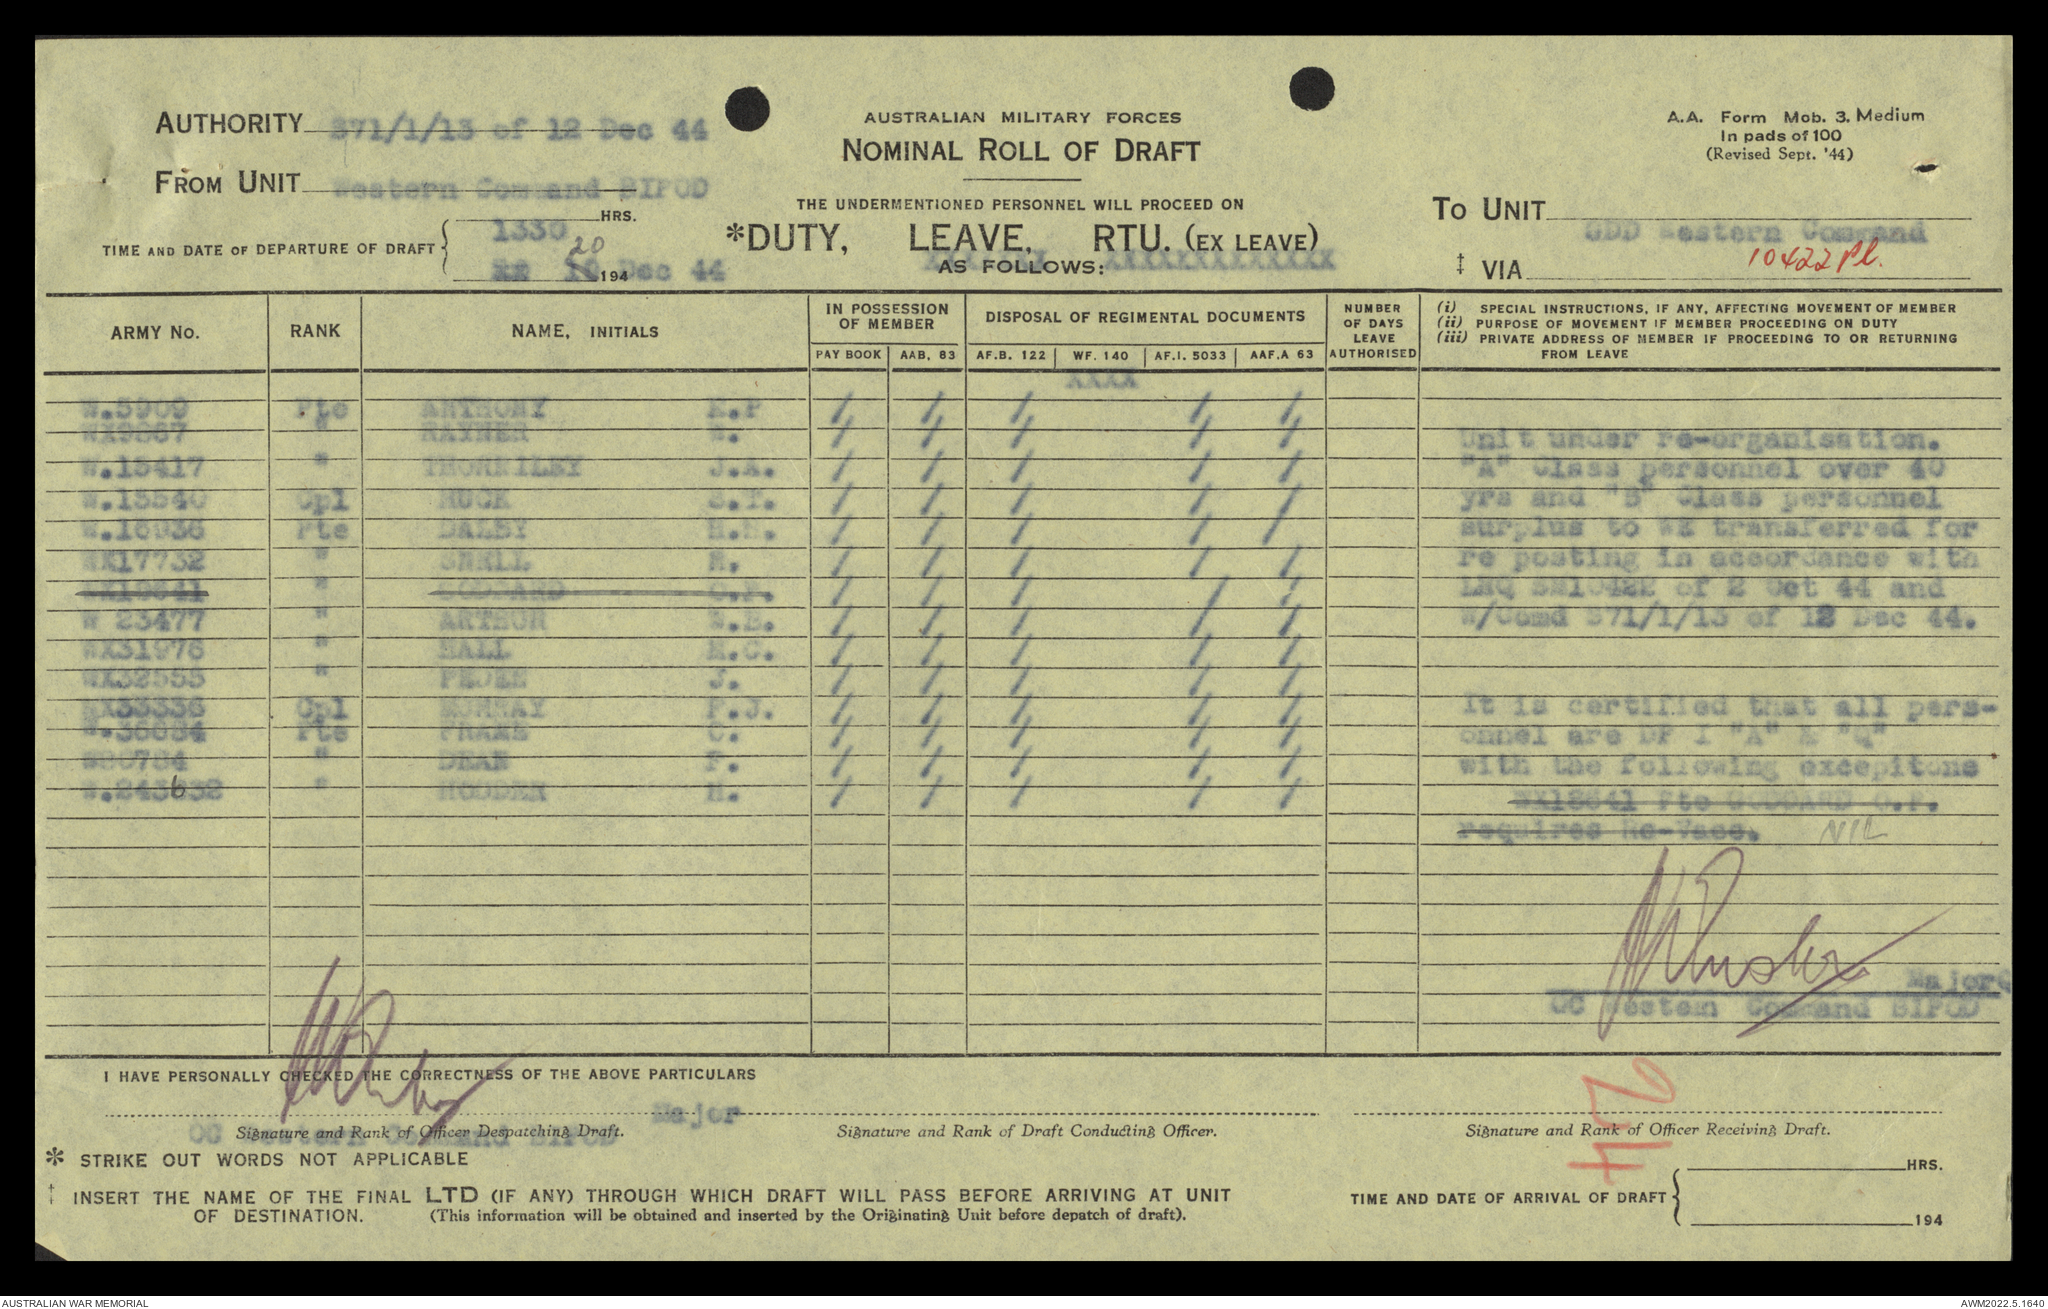 AUTHORITY 371/1/13 of 12 Dec 44
AUSTRALIAN MILITARY FORCES
NOMINAL ROLL OF DRAFT
A.A. Form Mob. 3. Medium
In pads of 100
(Revised Sept. '44)
FROM UNIT Western Command BIPOD
THE UNDERMENTIONED PERSONNEL WILL PROCEED ON
*DUTY, LEAVE, RTU. (EX LEAVE)
AS FOLLOWS:
TO UNIT GDD Western Command
‡ VIA 10422 Pl.
TIME AND DATE OF DEPARTURE OF DRAFT { 1330 HRS.
20 194 Dec 44
ARMY No. RANK NAME, INITIALS IN POSSESSION OF MEMBER DISPOSAL OF REGIMENTAL DOCUMENTS NUMBER OF DAYS LEAVE AUTHORISED
PAY BOOK AAB. 83 AF.B. 122 WF. 140 AF.I. 5033 AAF.A 63
(i) SPECIAL INSTRUCTIONS, IF ANY, AFFECTING MOVEMENT OF MEMBER
(ii) PURPOSE OF MOVEMENT IF MEMBER PROCEEDING ON DUTY
(iii) PRIVATE ADDRESS OF MEMBER IF PROCEEDING TO OR RETURNING FROM LEAVE
XXXX
W.5909 Pte ANTHONY K.P / / / / /
WX9867 " RAYNER W. / / / / /
W.15417 " THORNILEY J.A. / / / / /
W.15540 Cpl HUCK S.T. / / / / /
W.16936 Pte DALBY H.H. / / / / /
WX17732 " SNELL / / / / /
WX18641 " GODDARD O.P. / / / / /
W 23477 " ARTHUR W.B. / / / / /
WX31976 " HALL M.C. / / / / /
WX32555 " J. / / / / /
WX33336 Cpl MURRAY P.J. / / / / /
W.36684 Pte FRAME C. / / / / /
W80784 " DEAN F. / / / / /
W.243632 " HODDER H. / / / / /
Unit under re-organisation.
"A" Class personnel over 40
yrs and "B" Class personnel
surplus to WE transferred for
re posting in accordance with
LHQ SM10422 of 2 Oct 44 and
W/Comd 371/1/13 of 12 Dec 44.
It is certified that all pers-
onnel are DP 1 "A" X "Q"
with the following excepitone
WX18641 Pte GODDARD O.P.
requires Re-Vacc. NIL
Major
OC Western Command BIPOD
I HAVE PERSONALLY CHECKED THE CORRECTNESS OF THE ABOVE PARTICULARS
Major
OC Western Command BIPOD
Signature and Rank of Officer Despatching Draft.
Signature and Rank of Draft Conducting Officer.
Signature and Rank of Officer Receiving Draft.
* STRIKE OUT WORDS NOT APPLICABLE
‡ INSERT THE NAME OF THE FINAL LTD (IF ANY) THROUGH WHICH DRAFT WILL PASS BEFORE ARRIVING AT UNIT
OF DESTINATION. (This information will be obtained and inserted by the Originating Unit before depatch of draft).
HRS.
TIME AND DATE OF ARRIVAL OF DRAFT {
194
AUSTRALIAN WAR MEMORIAL
AWM2022.5.1640